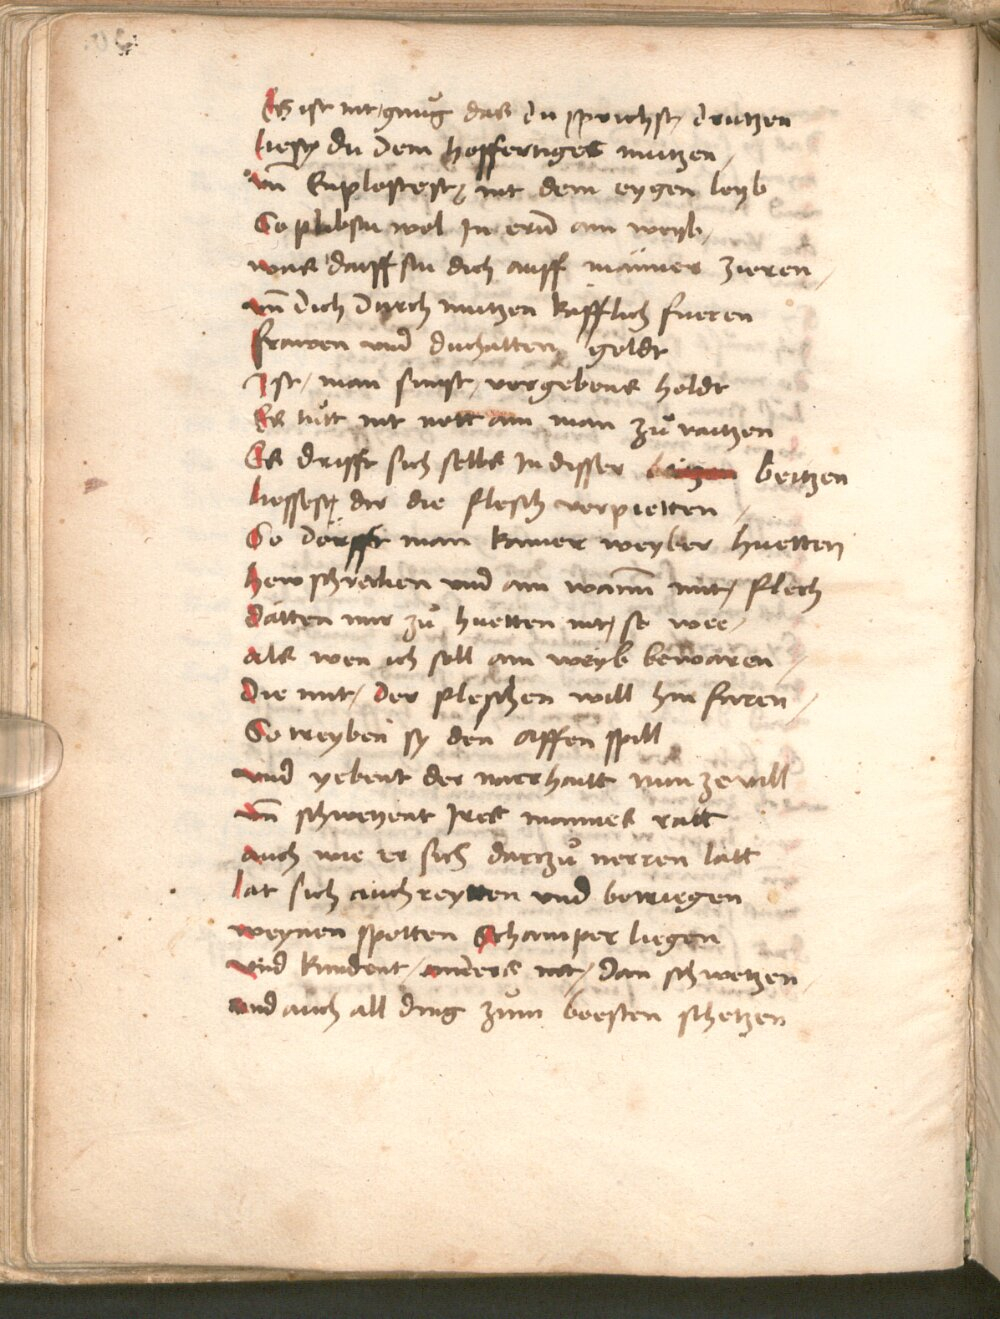 Es ist nit gnuͦg das du sprichst drutzen
liesß du dem hoffertiges mutzen /
vn̄ Enplostest nit dem eygen leyb
So plibstu wol In erñ ain weyb /
was darffstu dich auff männer zieren /
vn̄ dich durch mutzen kifflich fueren
frawen und duchatten goldt
Ist / man sunst / vergebens holdt
Es tuͦtt nit nott ain man zuͦ raitzen
Es drifft sich selbs In disser beitzen
liessest dir die flesch verpietten /
So dörfft man kainer weyber huetten
hew schrecken und ain wannen mit flech
dätten mir zuͦ huetten nit so wee /
als wen ich soll ain weyb bewaren /
die mit / der fleschen will hin faren /
So treyben sy den affen spill
vnd yebent der narrhautt nun ze vill
vn̄ schweyent Ires mannes ratt
auch wie er sich darczuͦ nerren latt
lat sich auch reytten und betriegen
weynen spotten Schamper liegen
vnd kundent / anders nit / dan schwetzen /
vnd auch all ding zuͦm boesten schetzen